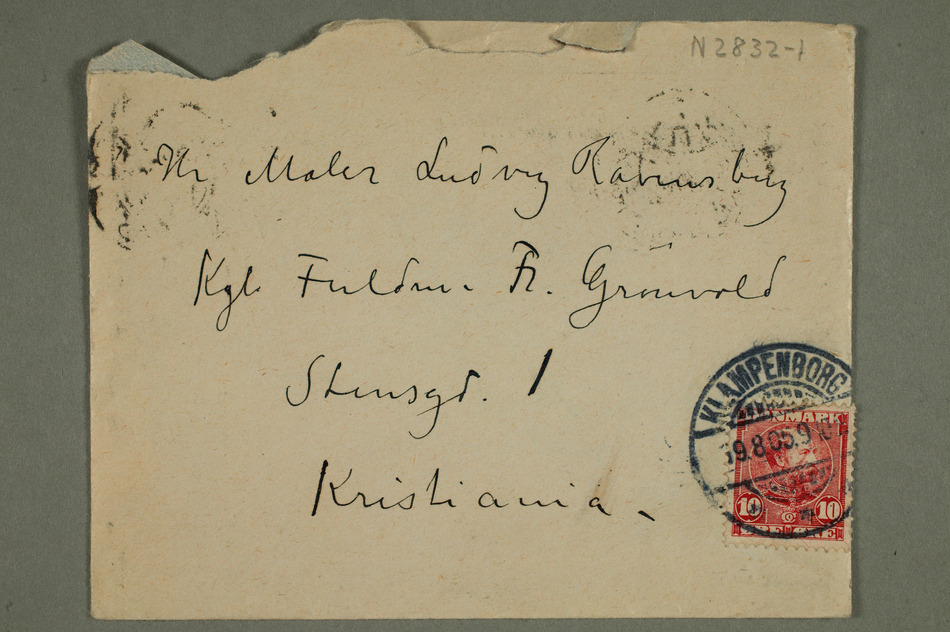 N 2832-1
Hr Maler Ludvig Ravensberg
Kgl. Fuldm. Fr. Grönvold
Stensgd. 1
Kristiania.
KLAMPENBORG
19.8.05.9
DANMARK
10 10